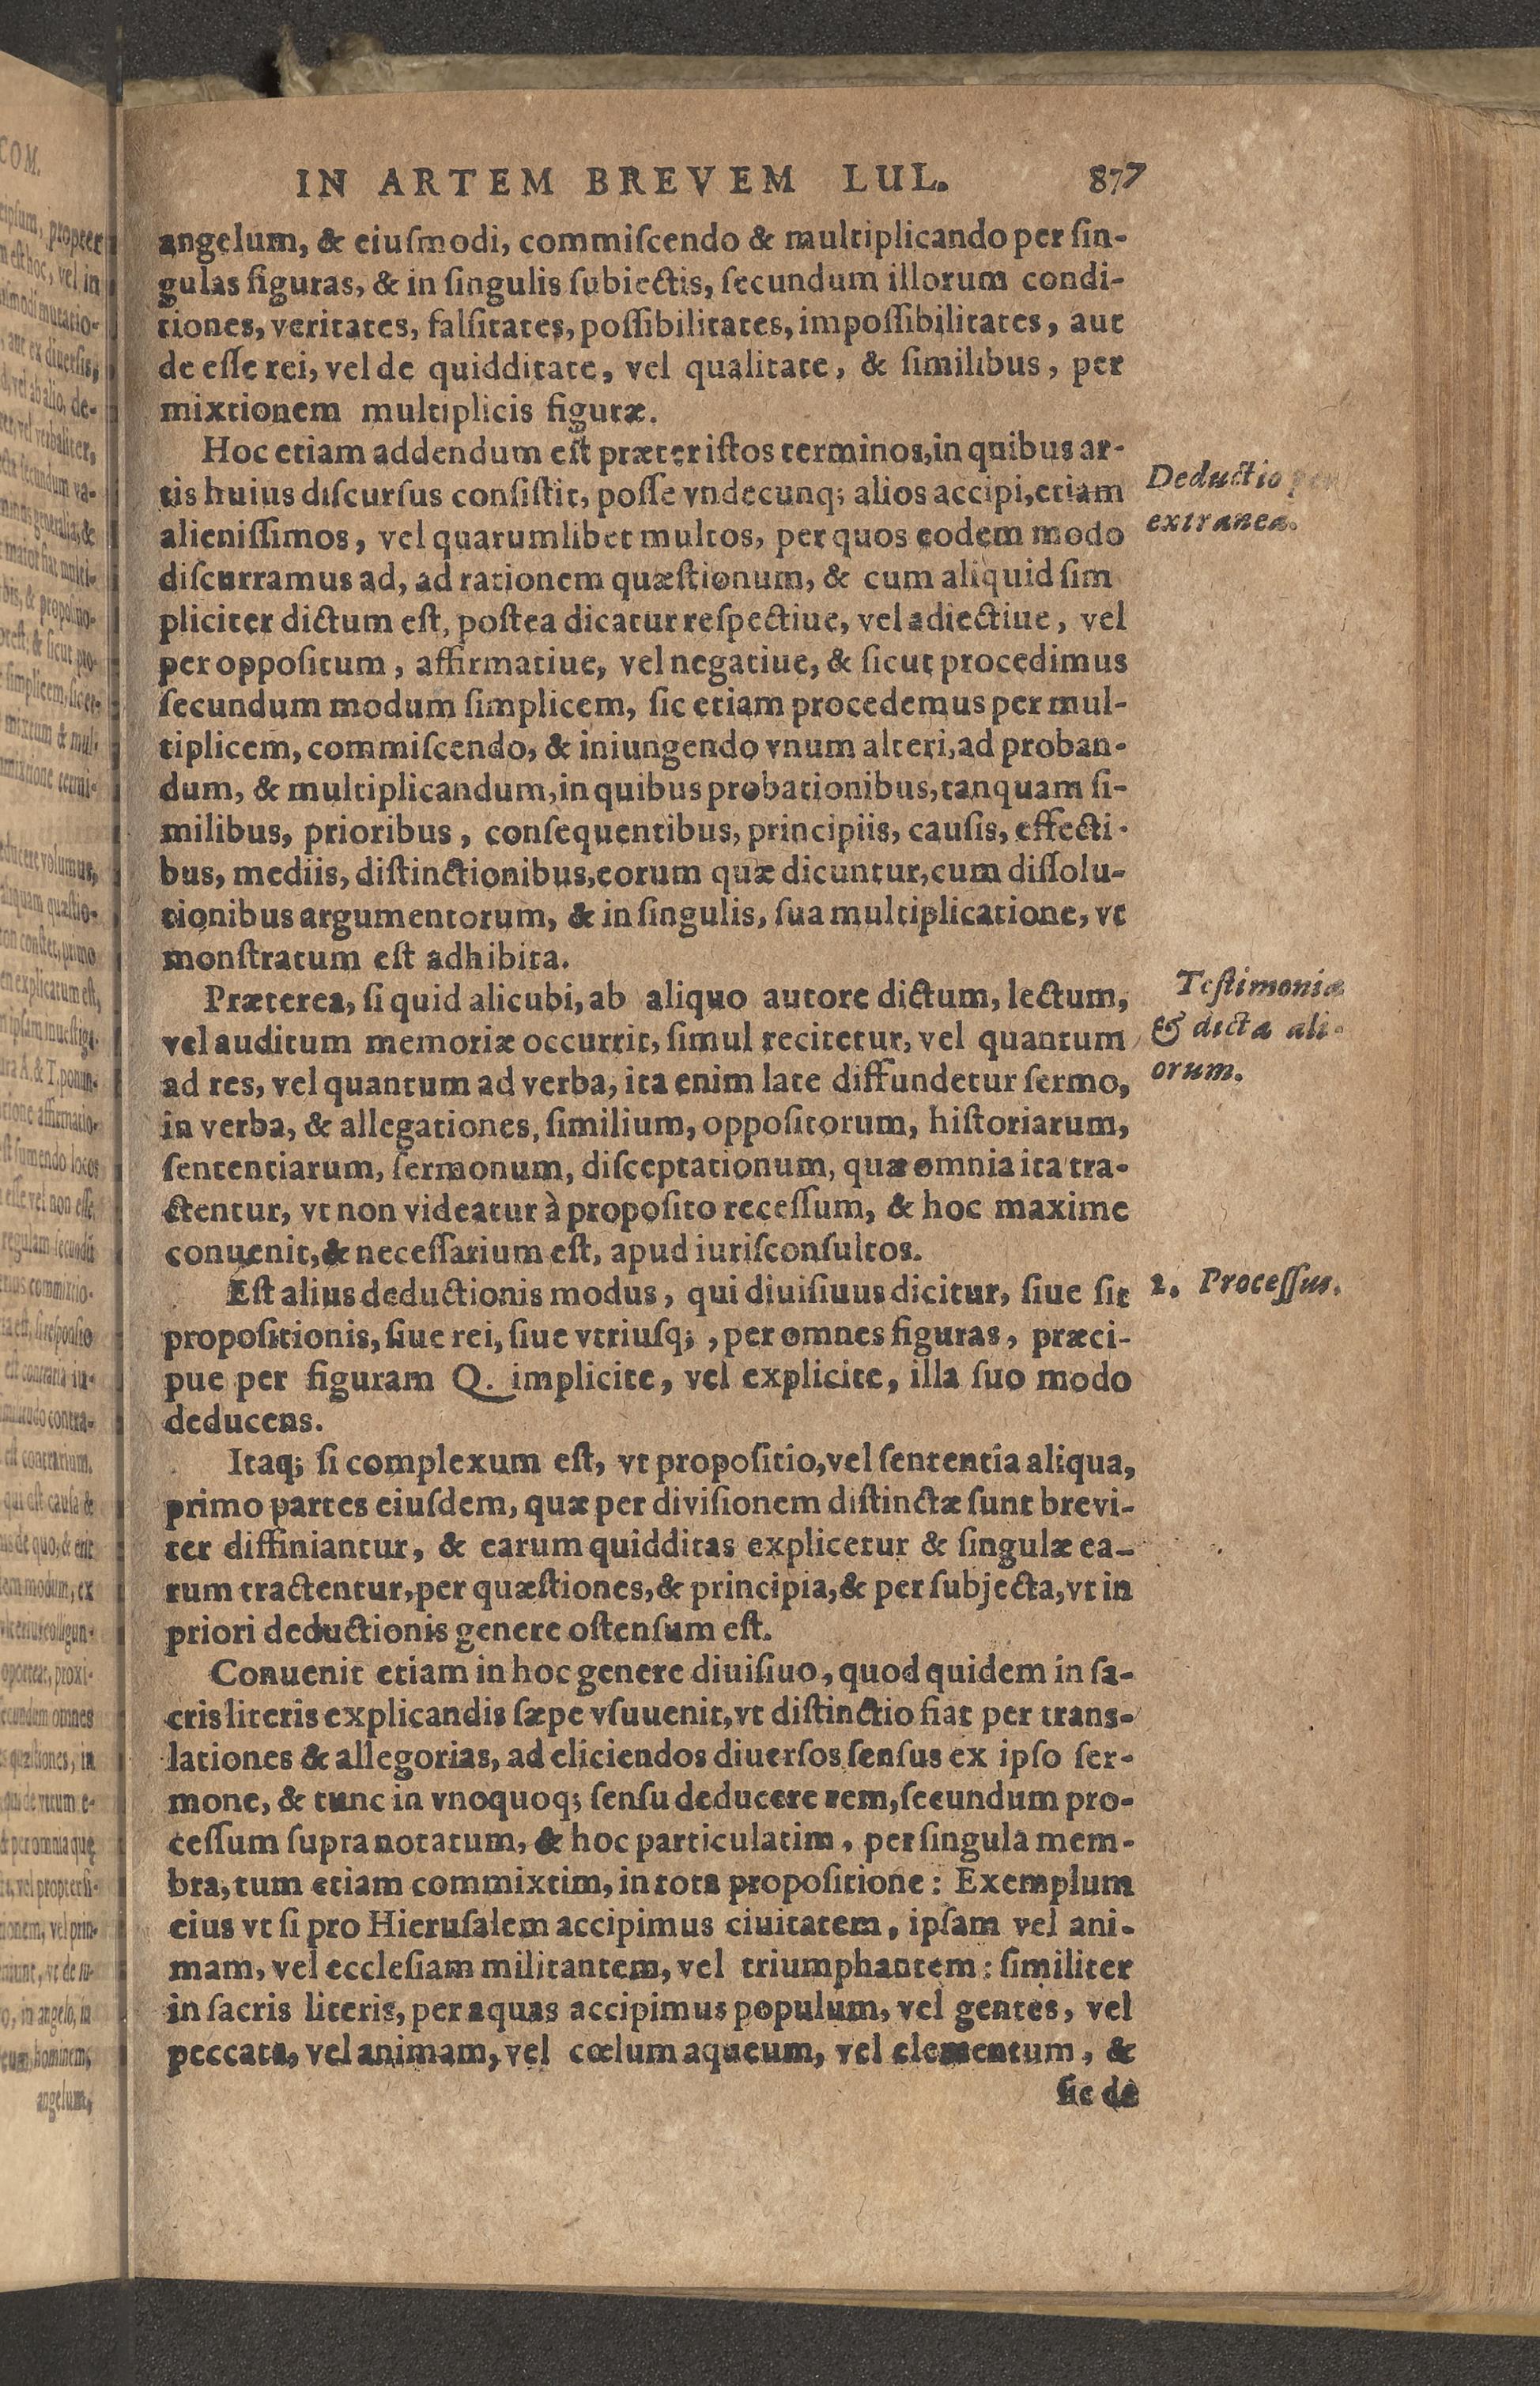 IN ARTEM BREVEM LUL. 877
angelum, & eiuſmodi, commiſcendo & multiplicando per ſin-
gulas figuras, & in ſingulis ſubiectis, ſecundum illorum condi-
tiones, veritates, falſitates, poſſibilitates, impoſſibilitates, aut
de eſſe rei, vel de quidditate, vel qualitate, & ſimilibus, per
mixtionem multiplicis figuræ.
Hoc etiam addendum eſt præter iſtos terminos, in quibus ar-
tis huius diſcurſus conſiſtit, poſſe vndecunq; alios accipi, etiam
alieniſſimos, vel quarumlibet multos, per quos eodem modo
diſcurramus ad, ad rationem quæſtionum, & cum aliquid ſim
pliciter dictum eſt, poſtea dicatur reſpectiue, vel adiectiue, vel
per oppoſitum, affirmatiue, vel negatiue, & ſicut procedimus
ſecundum modum ſimplicem, ſic etiam procedemus per mul-
tiplicem, commiſcendo, & iniungendo vnum alteri, ad proban-
dum, & multiplicandum, in quibus probationibus, tanquam ſi-
milibus, prioribus, conſequentibus, principiis, cauſis, effecti-
bus, mediis, diſtinctionibus, eorum quæ dicuntur, cum diſſolu-
tionibus argumentorum, & in ſingulis, ſua multiplicatione, vt
monſtratum eſt adhibita.
Præterea, ſi quid alicubi, ab aliquo autore dictum, lectum,
vel auditum memoriæ occurrit, ſimul recitetur, vel quantum
ad res, vel quantum ad verba, ita enim late diffundetur ſermo,
in verba, & allegationes, ſimilium, oppoſitorum, hiſtoriarum,
ſententiarum, ſermonum, diſceptationum, quæ omnia ita tra-
ctentur, vt non videatur à propoſito receſſum, & hoc maxime
conuenit, & neceſſarium eſt, apud iuriſconſultos.
Eſt alius deductionis modus, qui diuiſiuus dicitur, ſiue ſit
propoſitionis, ſiue rei, ſiue vtriuſq; , per omnes figuras, præci-
pue per figuram Q. implicite, vel explicite, illa ſuo modo
deducens.
Itaq; ſi complexum eſt, vt propoſitio, vel ſententia aliqua,
primo partes eiuſdem, quæ per diviſionem diſtinctæ ſunt brevi-
ter diffiniantur, & earum quidditas explicetur & ſingulæ ea-
rum tractentur, per quæſtiones, & principia, & per ſubjecta, vt in
priori deductionis genere oſtenſum eſt.
Conuenit etiam in hoc genere diuiſiuo, quod quidem in ſa-
cris literis explicandis ſæpe vſuuenit, vt diſtinctio fiat per trans-
lationes & allegorias, ad eliciendos diuerſos ſenſus ex ipſo ſer-
mone, & tunc in vnoquoq; ſenſu deducere rem, ſecundum pro-
ceſſum ſupra notatum, & hoc particulatim, per ſingula mem-
bra, tum etiam commixtim, in tota propoſitione: Exemplum
eius vt ſi pro Hieruſalem accipimus ciuitatem, ipſam vel ani-
mam, vel eccleſiam militantem, vel triumphantem: ſimiliter
in ſacris literis, per aquas accipimus populum, vel gentes, vel
peccata, vel animam, vel cœlum aqueum, vel elementum, &
ſic de
Deductio per
extranea.
Teſtimonia
& dicta ali-
orum.
2. Proceſſus.